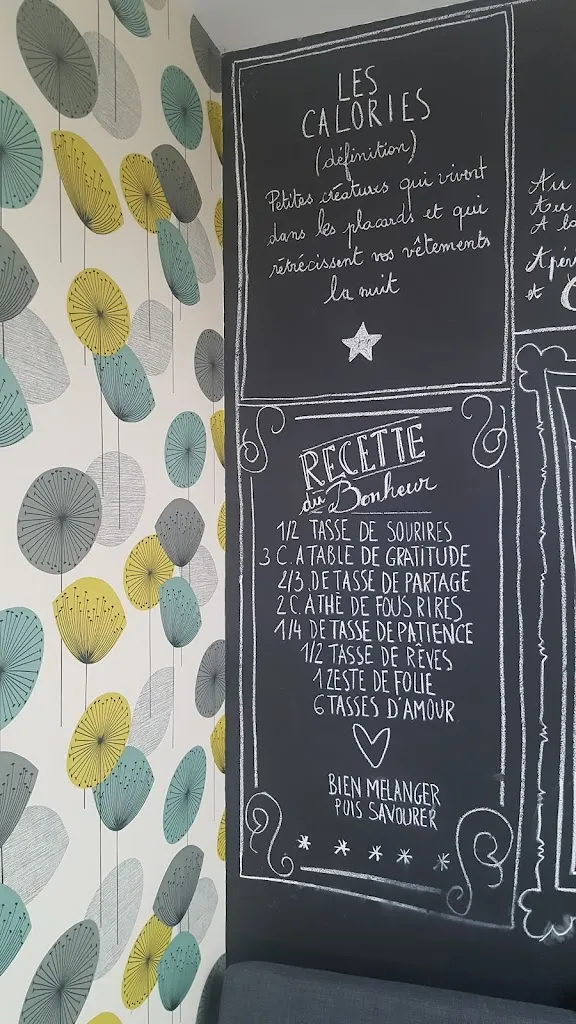 LES
CALORIES
(définition)
Petites créatures qui vivent
dans les placards et qui
rétrécissent vos vêtements
la nuit
RECETTE
du Bonheur
1/2 TASSE DE SOURIRES
3 C. A TABLE DE GRATITUDE
2/3. DE TASSE DE PARTAGE
2 C. A THÉ DE FOUS RIRES
1/4 DE TASSE DE PATIENCE
1/2 TASSE DE RÊVES
1 ZESTE DE FOLIE
6 TASSES D'AMOUR
BIEN MELANGER
PUIS SAVOURER
Au
Au
A la
Apér
et